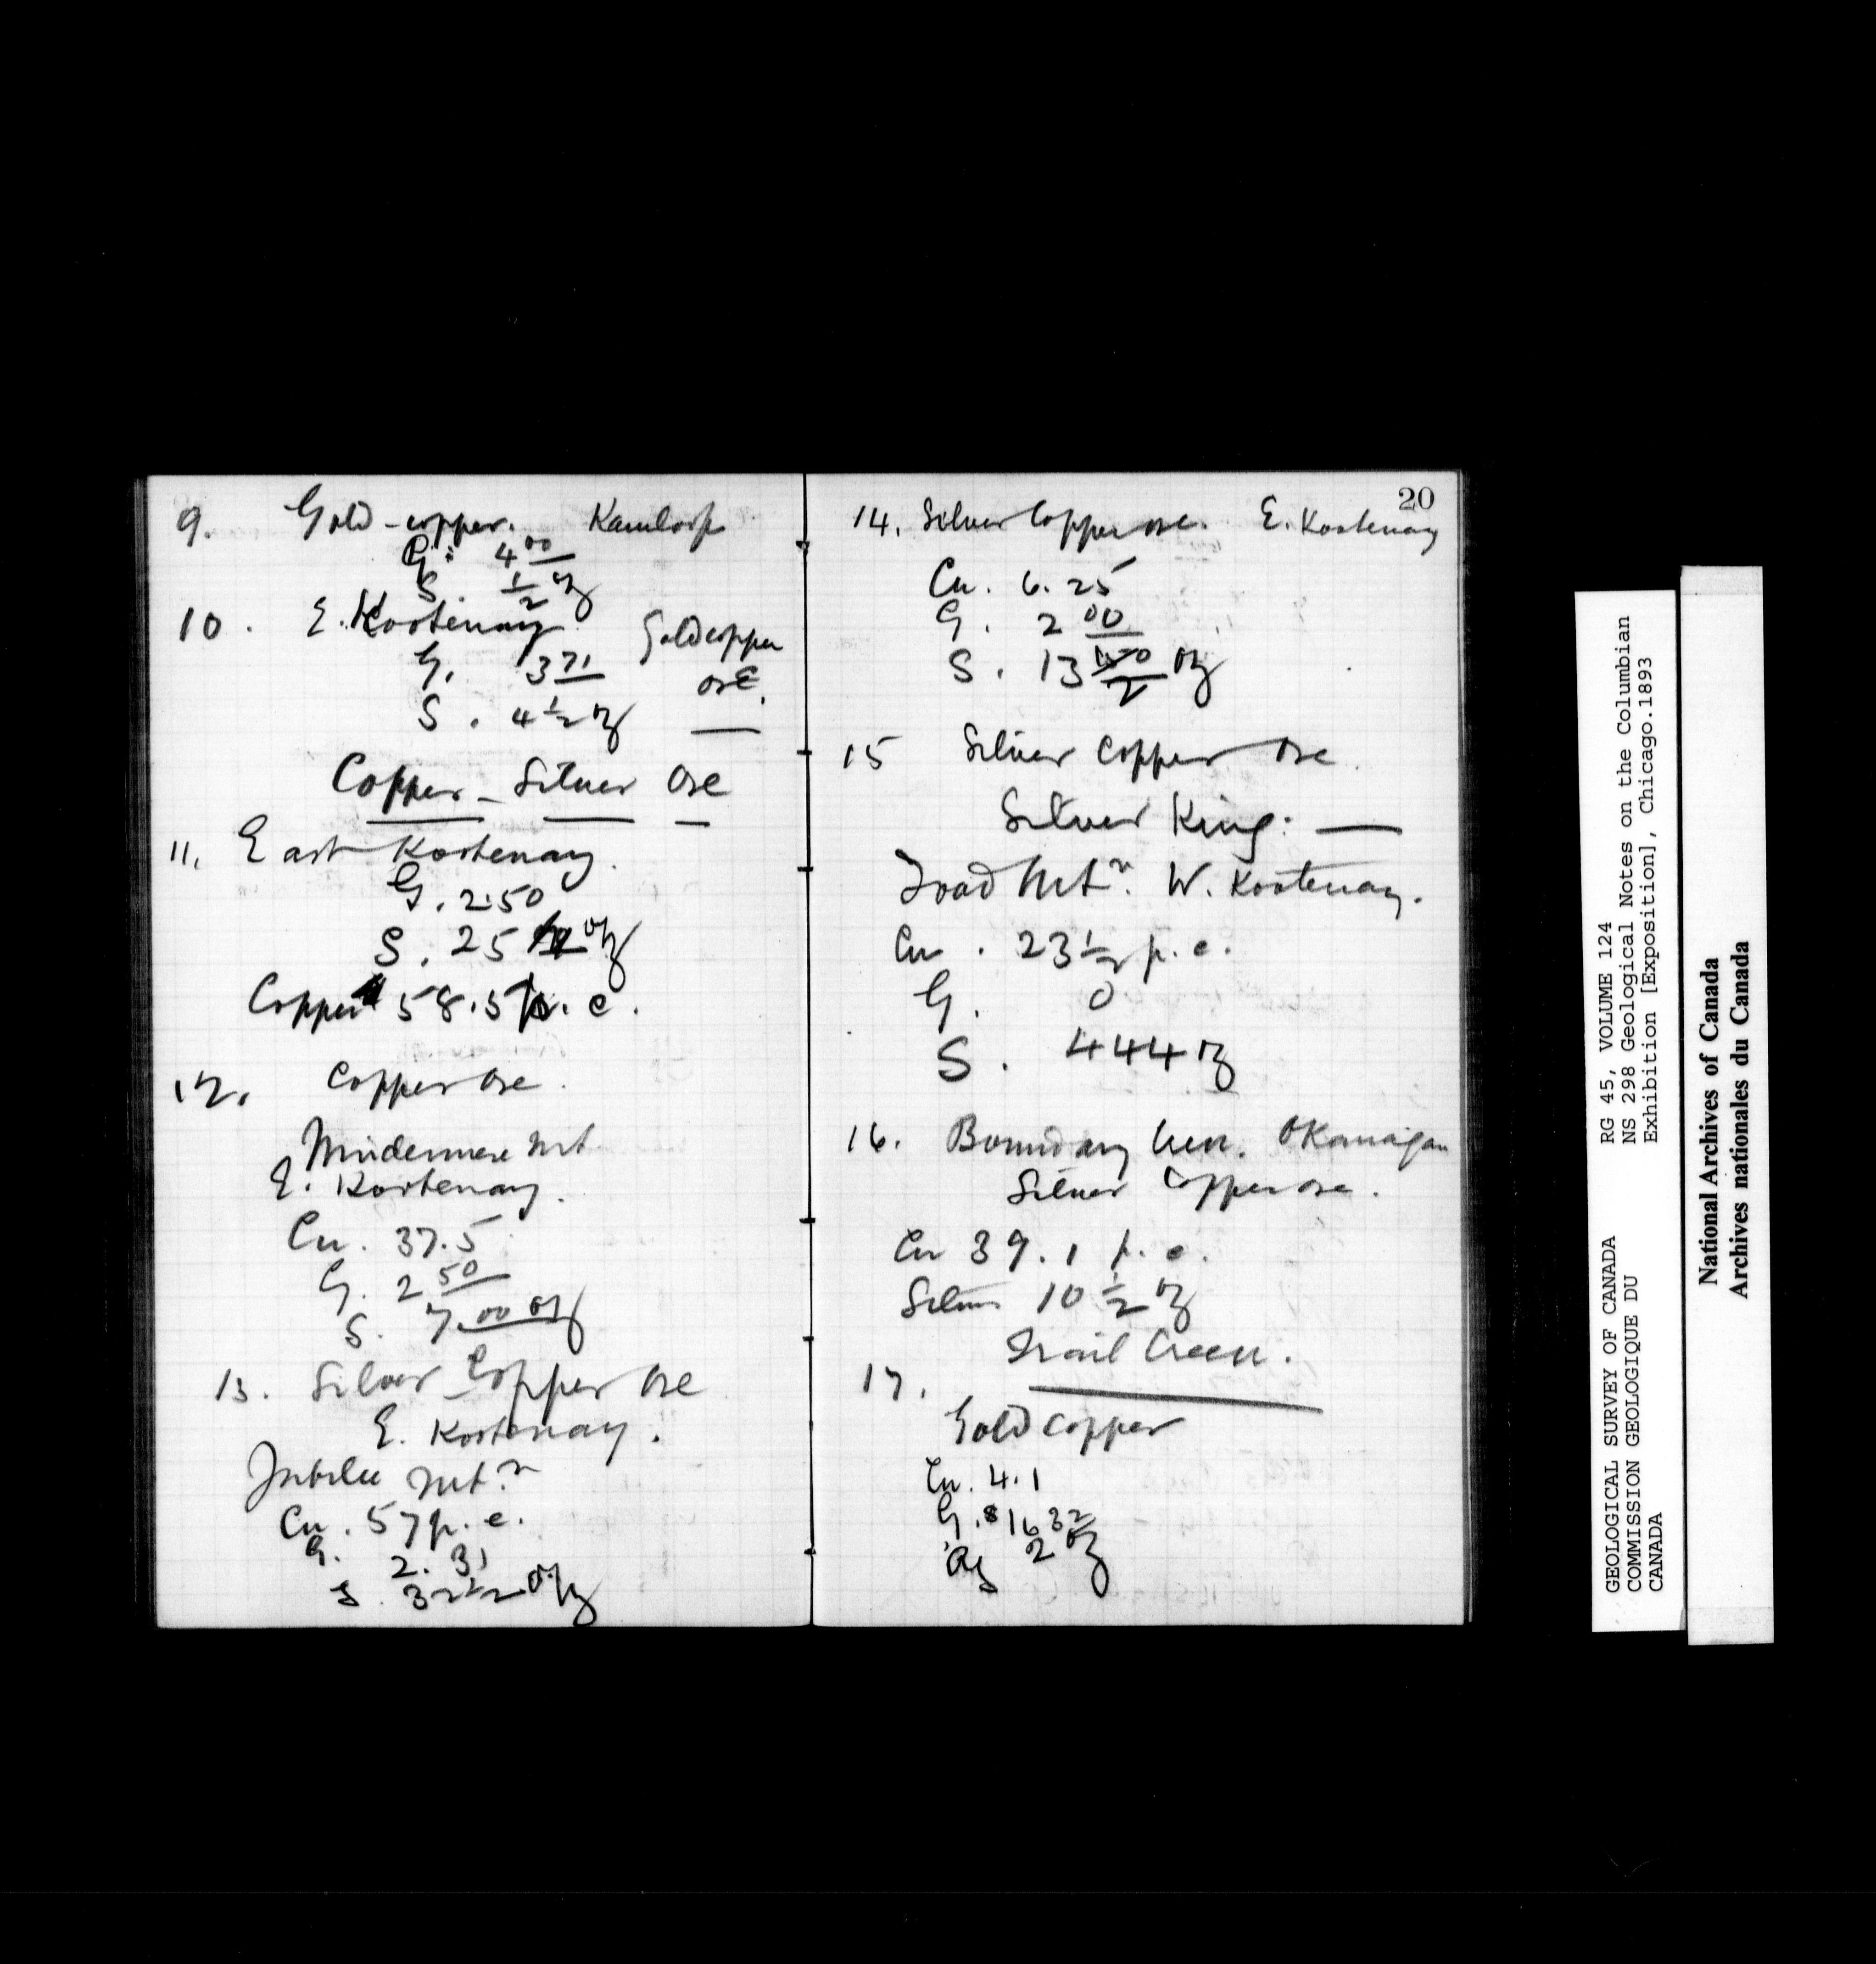 9. Gold-copper. Kamloops
G. 4 00
S. 1/2 oz
10. E. Kootenay. Gold copper
G. 3 71 ore.
S. 4 1/2 oz
Copper - Silver Ore
11. East Kootenay.
G. 2.50
S. 25 oz
Copper 58.5 p.c.
12. Copper Ore.
Windermere Mt
E. Kootenay.
Cu. 37.5
G. 2 50
S. 7.00 oz
13. Silver-Copper Ore
E. Kootenay.
Jubilee Mtn
Cu. 57 p.c.
G. 2.31
S. 32 1/2 oz
20
14. Silver Copper ore. E. Kootenay
Cu. 6.25
G. 2 00
S. 13 1/2 oz
15 Silver Copper Ore.
Silver King: —
Toad Mtn. W. Kootenay.
Cu. 23 1/2 p.c.
G. 0
S. 444 oz
16. Boundary Creek. Okanagan
Silver Copper ore.
Cu 39.1 p.c.
Silver 10 1/2 oz
Trail Creek.
17.
Gold copper
Cu. 4.1
G. $16 32
Ag 2 oz
GEOLOGICAL SURVEY OF CANADA RG 45, VOLUME 124
COMMISSION GEOLOGIQUE DU NS 298 Geological Notes on the Columbian
CANADA Exhibition [Exposition], Chicago.1893
National Archives of Canada
Archives nationales du Canada